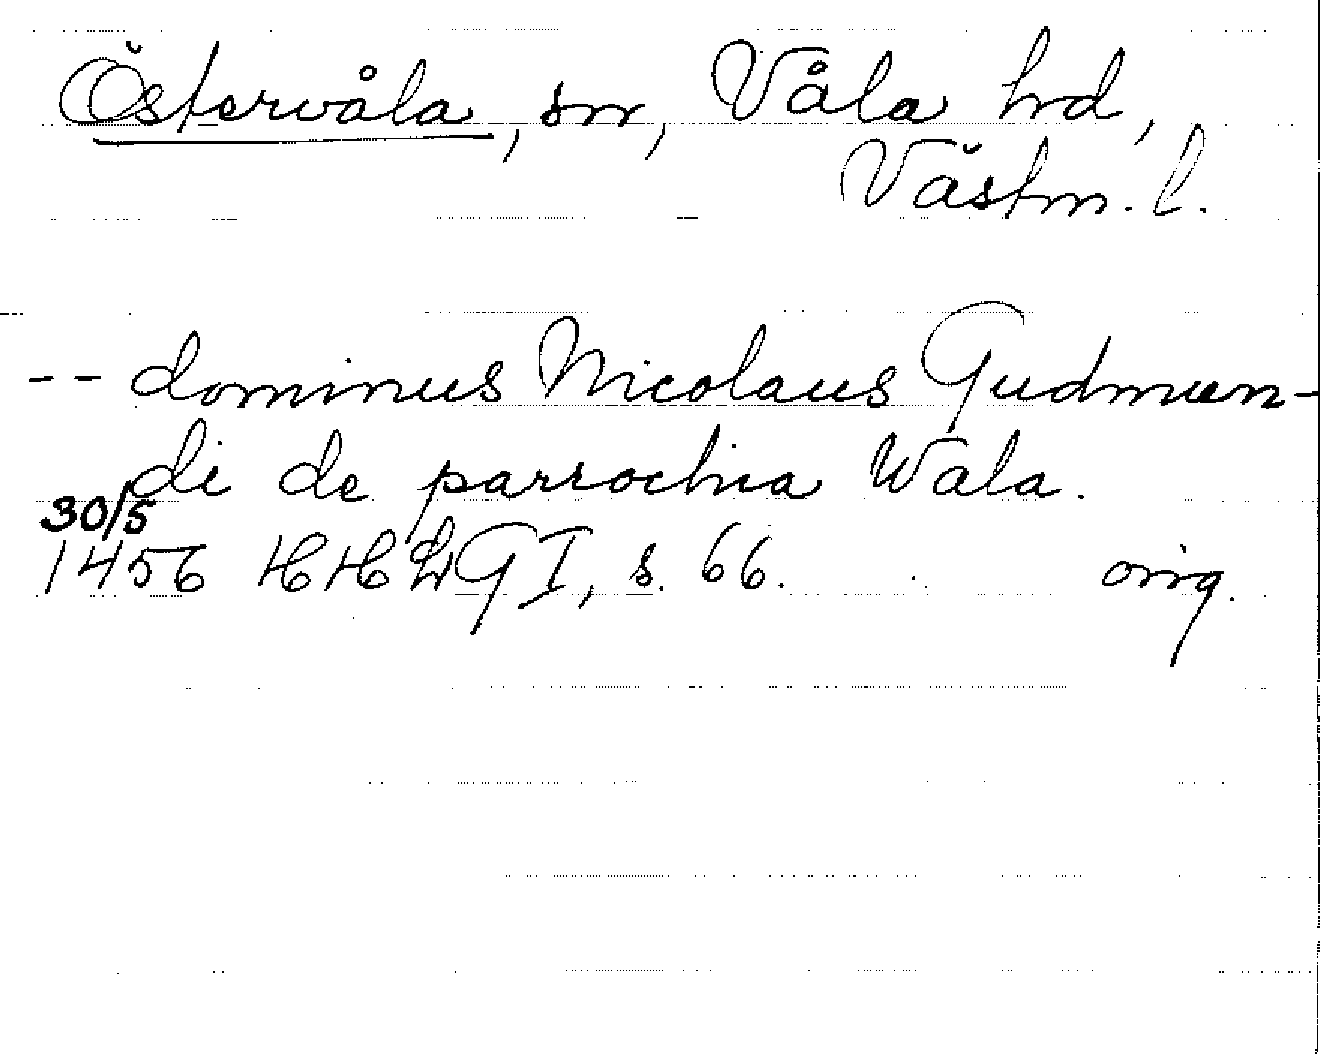 Östervåla, sn, Våla hd,
Västm. l.
-- dominus Nicolaus Gudmun-
di de parrochia Wala.
30/5
1456 HH LG I, s. 66. orig.